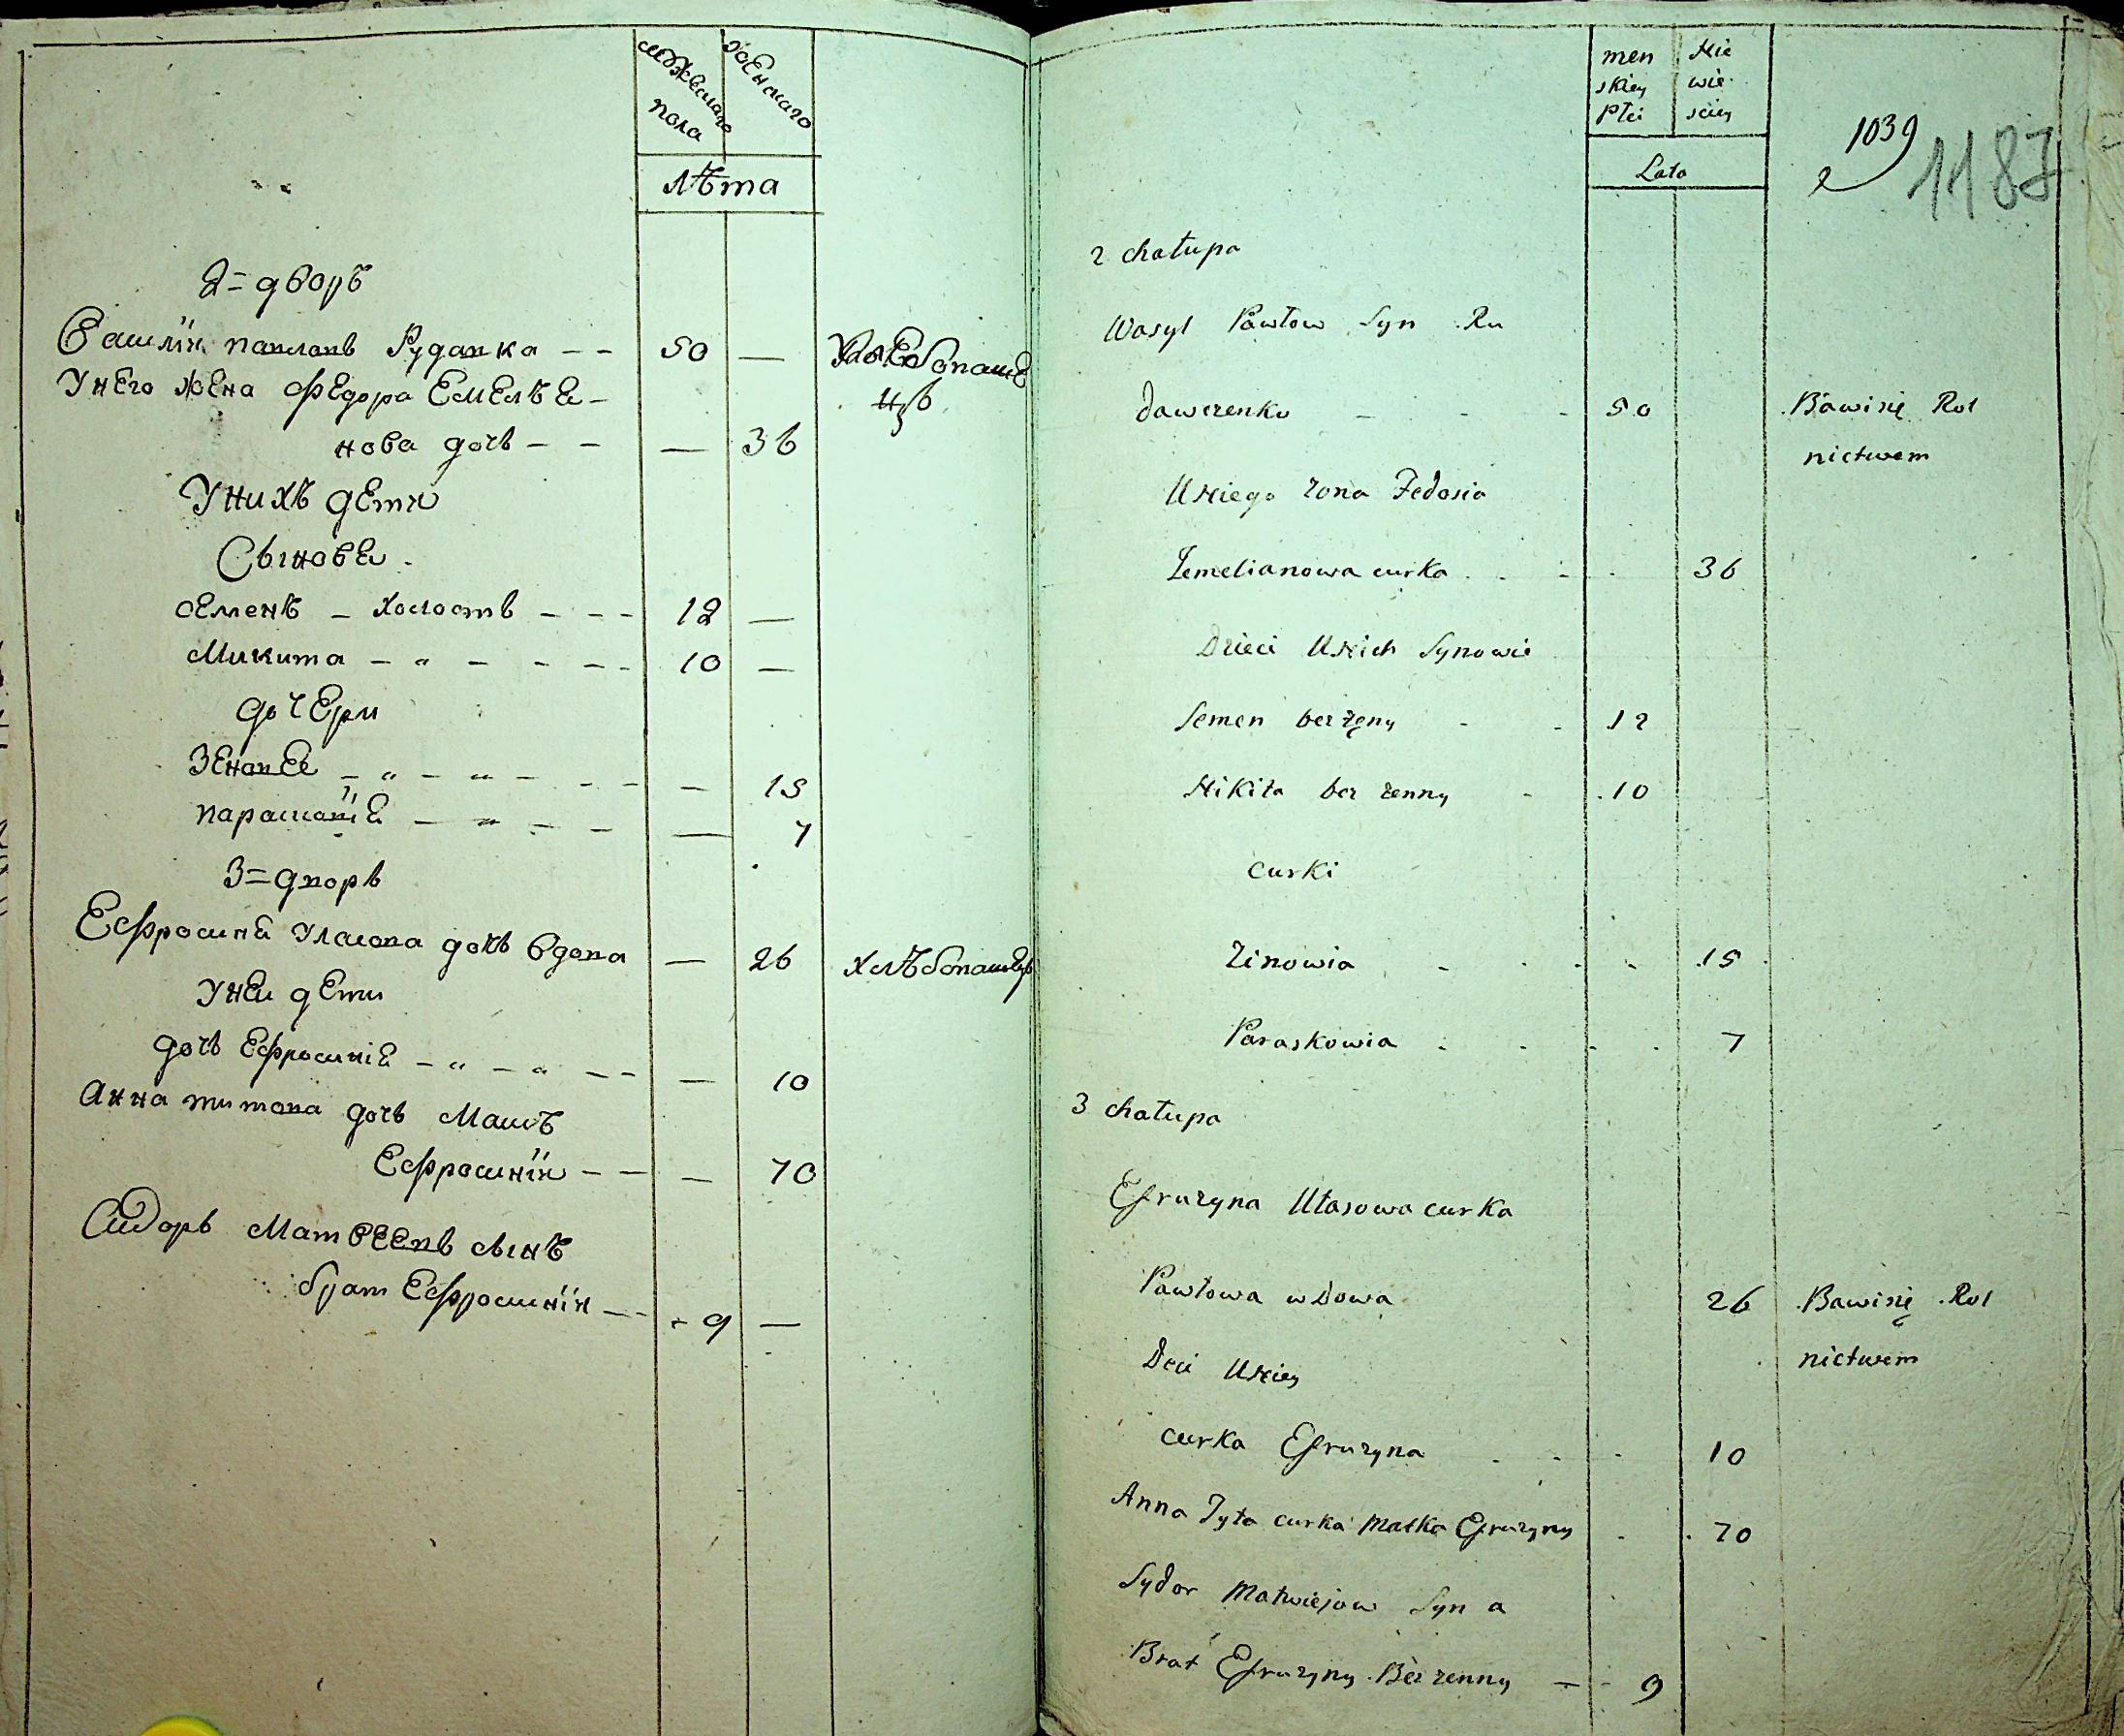 мужескаго
пола
женскаго
лѣта
2= дворъ
Василiи павловъ Рудавка - - 50 — Хлебопаше
цъ
Унего жена федора Емелѣе-
нова дочь - - — 36
Унихъ дети
Сынове.
семенъ - холостъ - - - 12 —
Микита - „ - - - - 10 —
дочери
Зеновее - „ - „ - - - — 15
парасковiе - „ - - — 7
3= дворъ
Ефросине Уласова дочь вдова — 26 хлѣбопашецъ
Унеи дети
дочь Ефросинiе - „ - „ - - — 10
Анна титова дочь Матѣ
Ефросинiи - - — 70
Сидоръ Матвеевъ сынъ
брат Ефросинiи - - 9 —
men
skiey
Płci
Nie
wie
sciey
Lata
1039
2
1187
2 chałupa
Wasyl Pawłow Syn Ru
dawczenko - - - 50 Bawisię Rol
nictwem
Uniego żona Fedosia
Jemelianowa curka 36
Dzieci Unich Synowie
Semen bez żeny - - 12
Nikita bez żenny - 10
curki
Zinowia - - - - 15
Paraskowia - - - - 7
3 chałupa
Efruzyna Ułasowa curka
Pawłowa wdowa 26 Bawisię Rol
nictwem
Deci Uniey
curka Efruzyna - - - 10
Anna Tyta curka Matka Efruzyny 70
Sydor Matwiejow Syn a
Brat Efruzyny Bez zenny - - 9